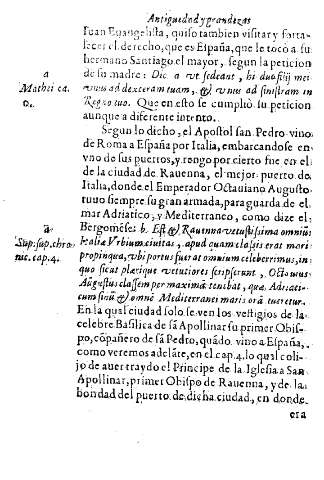 Antiguedad y grandezas
Iuan Euangelista, quiso tambien visitar y forta-
lecer el derecho, que es España, que le tocò a su
hermano Santiago el mayor, segun la peticion
de su madre: Dic. a vt sedeant, hi duo filij mei
vnus ad dexteram tuam, & vnus ad sinistram in
Regno tuo. Que en esto se cumplio su peticion
aunque a diferente intento.
a
Mathei ca.
Segun lo dicho, el Apostol san Pedro vino
de Roma a España por Italia, embarcandose en
vno de sus puertos, y tengo por cierto fue en el
de la ciudad de Rauena, el mejor puerto de
Italia, donde el Emperador Octauiano Augusto
tuuo siempre su gran armada, para guarda de el
mar Adriatico, y Mediterraneo, como dize el
Bergomese: b. Est & Rauenna vetustissima omniũ
Italiæ Vrbium ciuitas, apud quam classis erat mari
propinqua, vbi portus fuerat omnium celeberrimus, in
quo sicut plærique vetutiores scripserunt, Octauius
Augustus classem per maxima tenebat, quæ Adriati-
cum sinũ & omne Mediterranei maris orã tueretur.
a
Sup. sup. chro-
nic. cap. 4.
En la qual ciudad solo se ven los vestigios de la
celebre Basilica de sã Apollinar su primer Obis-
po, cõpañero de sã Pedro, quãdo vino a España,
como veremos adelãte, en el cap. 4. lo qual coli-
jo de auer traydo el Principe de la Iglesia a San
Apollinar, primer Obispo de Rauenna, y de la
bondad del puerto de dicha ciudad, en donde
era